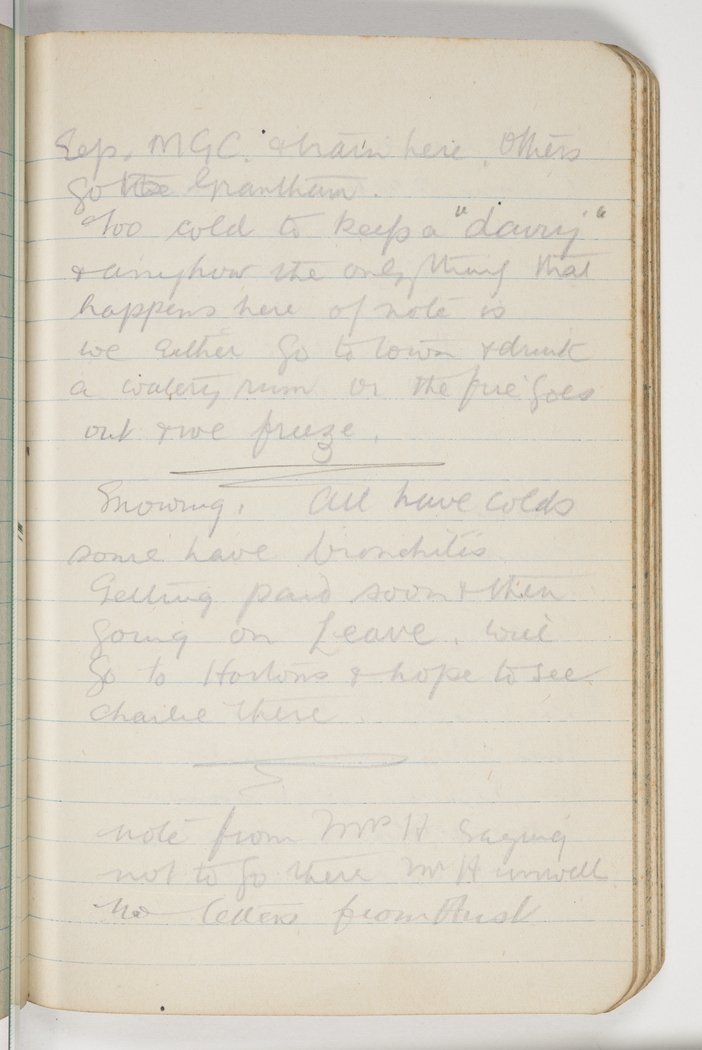 Sep. MGC. & train here. Others
go to Grantham.
Too cold to keep a "dairy"
& anyhow the only thing that
happens here of note is
we either go to town & drink
a watery rum or the fire goes
out & we freeze.
Snowing. All have colds
some have bronchitis
Getting paid soon & then
going on Leave. Will
go to Hortons & hope to see
Charlie there.
note from Mrs H saying
not to go there Mr H unwell
No letters from Aust